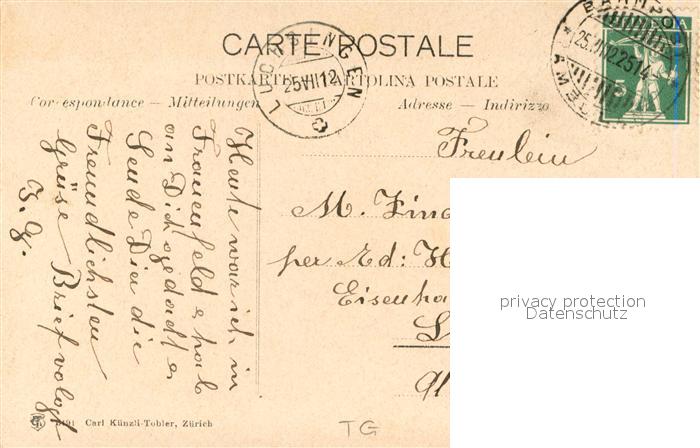 CARTE POSTALE
POSTKARTE CARTOLINA POSTALE
Correspondance — Mitteilungen
Adresse — Indirizzo
LUCHSINGEN
25 VII 12
5
Heute war ich in
Frauenfeld & hab
an Dich gedacht &
Sende Dir die
Freundlichsten
Grüse Brief volgt
Freulein
M.
per Ed:
privacy protection
Datenschutz
Carl Künzli-Tobler, Zürich
TG